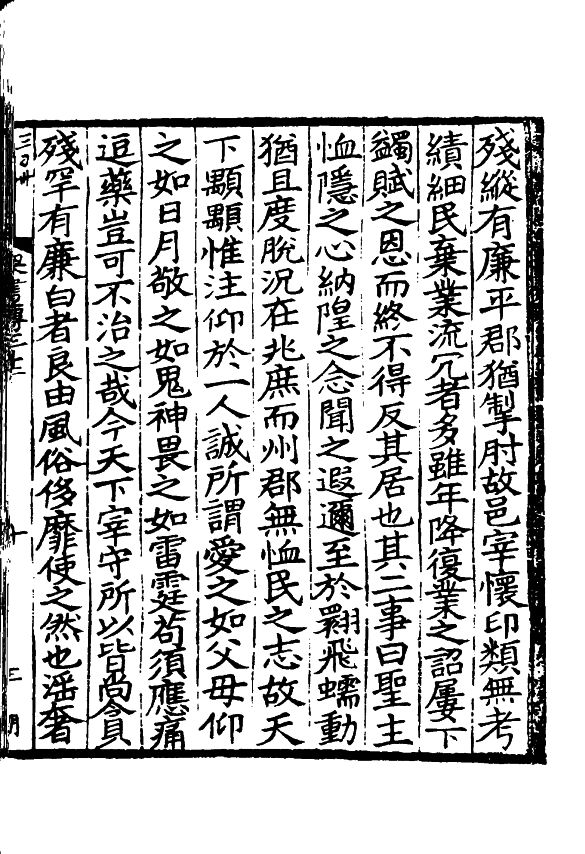 殘縱有廉平郡猶掣肘故邑宰懷印類無考
績細民棄業流冗者多雖年降復業之詔屢下
蠲賦之恩而終不得反其居也其三事曰聖主
恤隱之心納隍之念聞之遐邇至於翾飛蠕動
猶且度脫況在兆庶而州郡無恤民之志故天
下顒顒惟注仰於一人誠所謂愛之如父母仰
之如日月敬之如鬼神畏之如雷霆苟須應痛
逗藥豈可不治之哉今天下宰守所以皆尚貪
殘罕有廉白者良由風俗侈靡使之然也滛奢